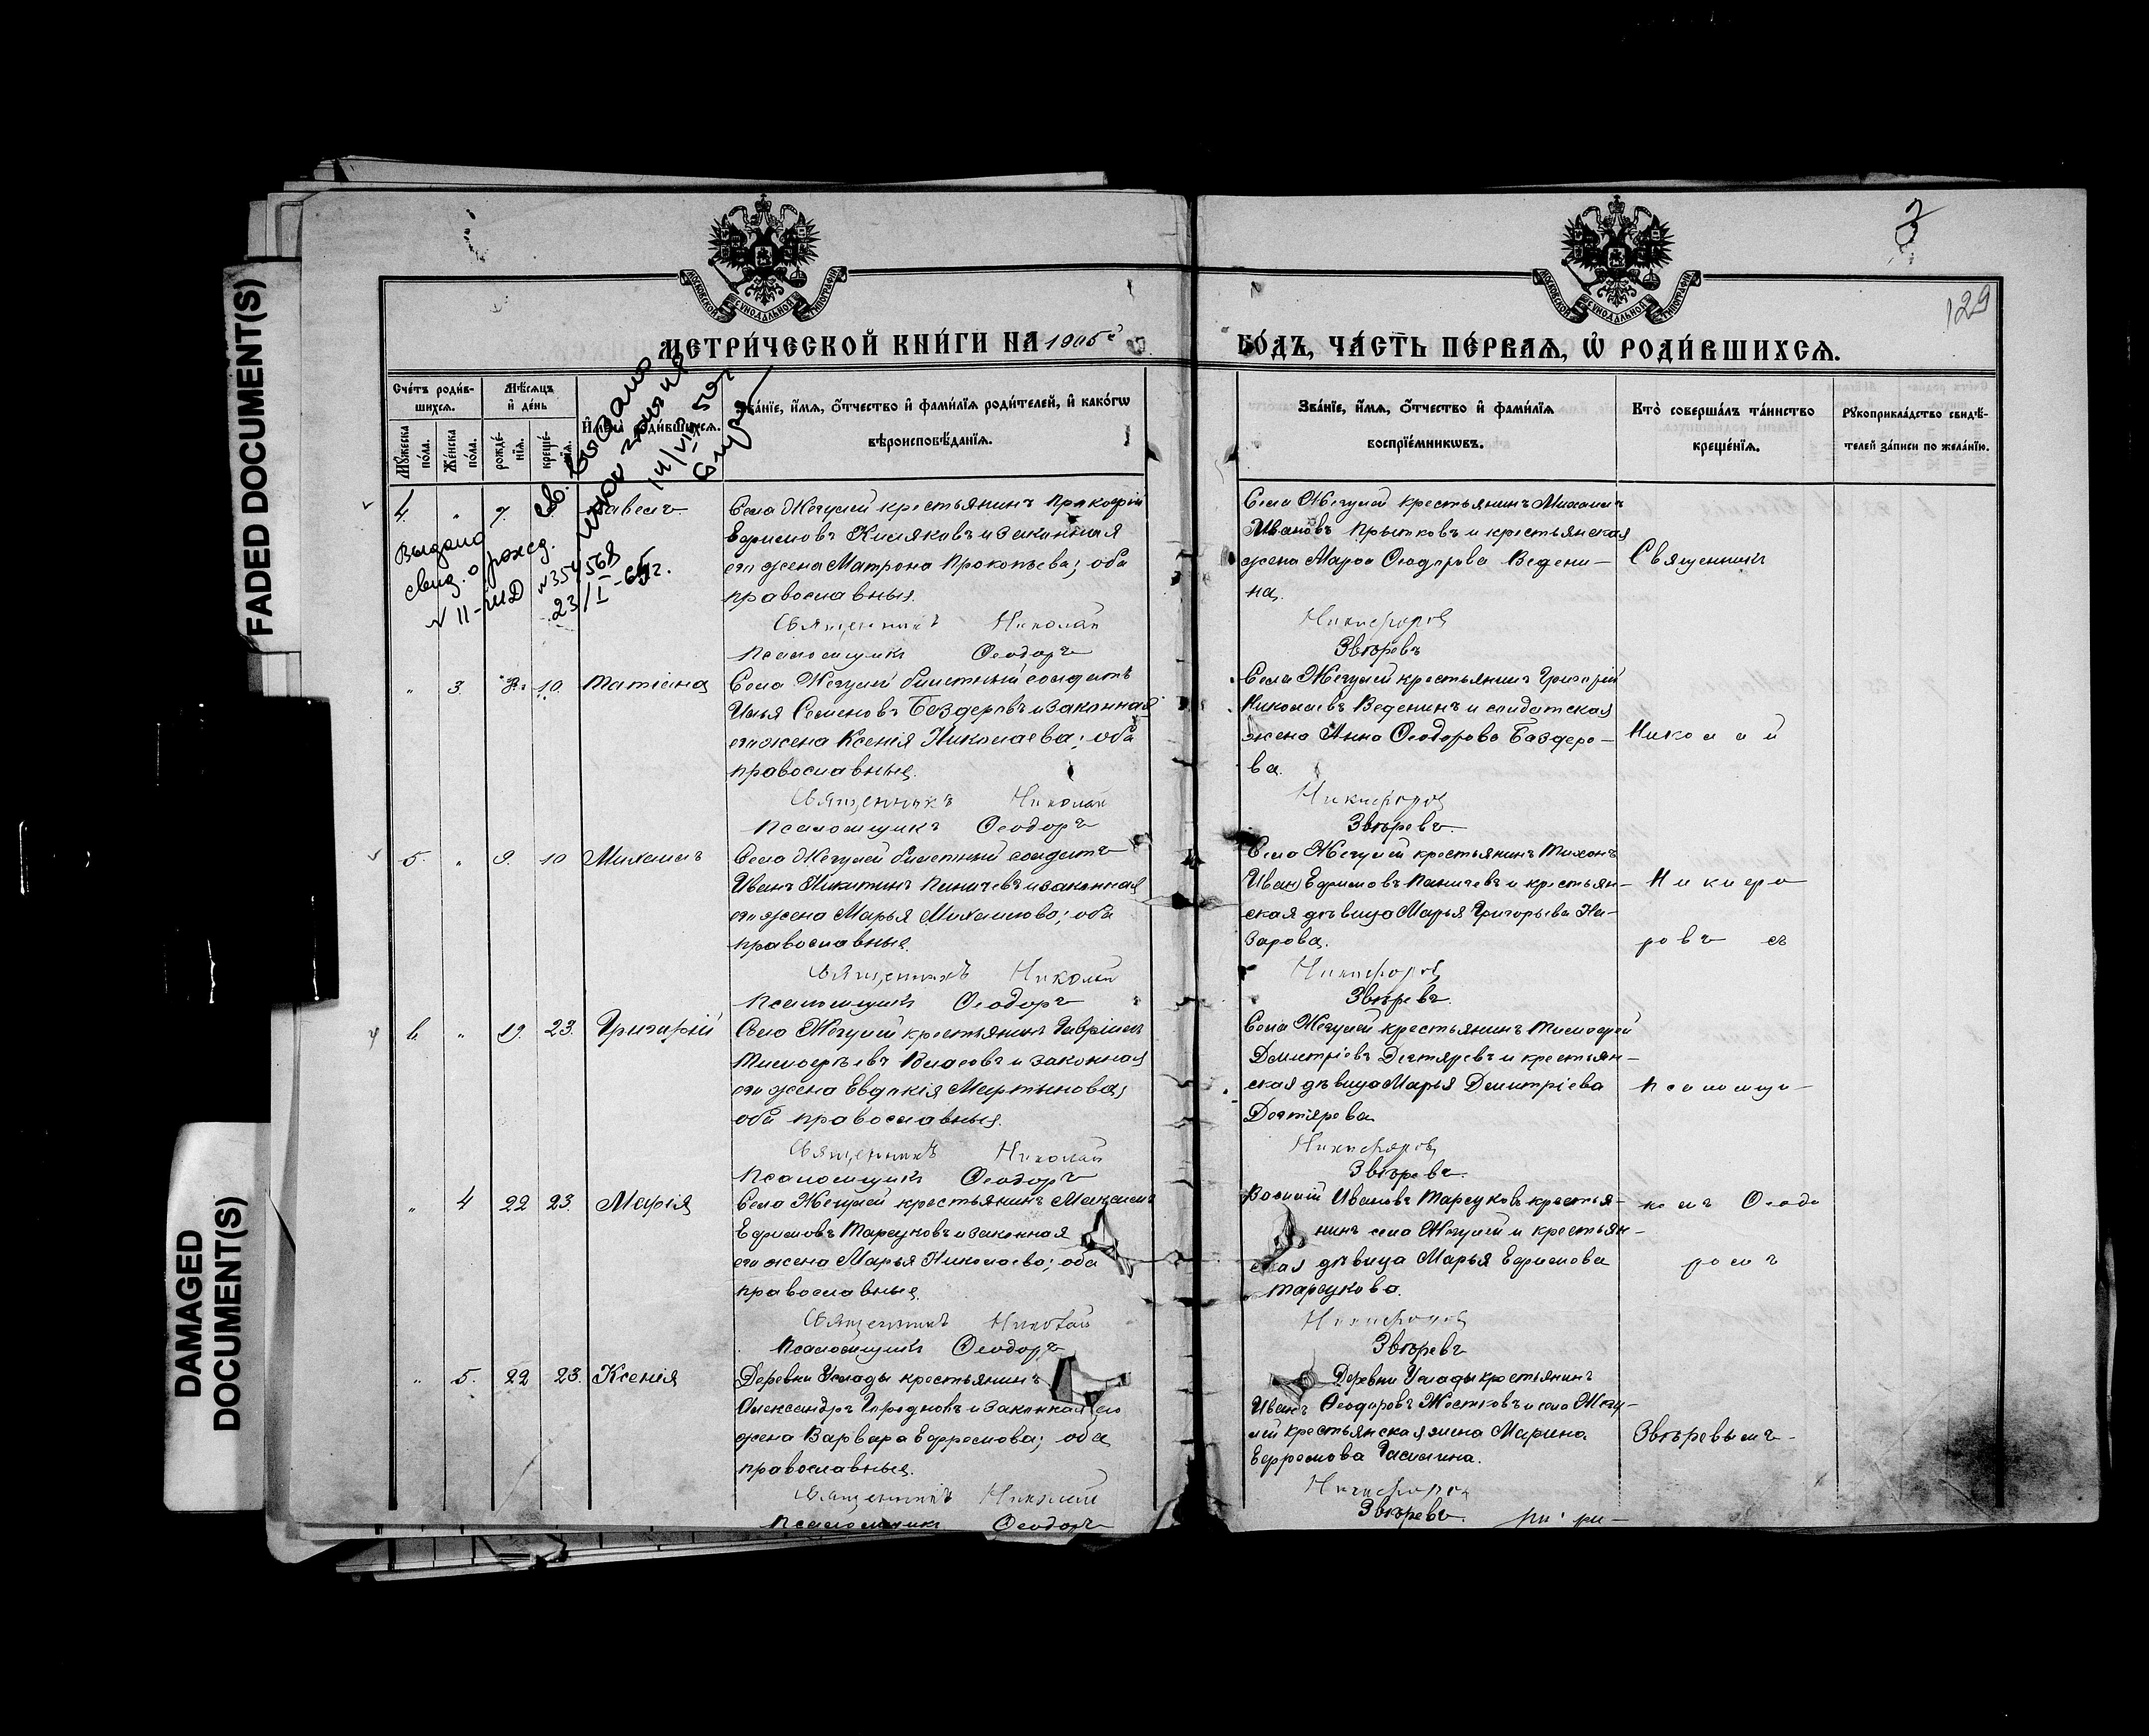 FADED DOCUMENT(S)
DAMAGED
DOCUMENT(S)
3
129
МОСКОВСКОЙ СѴНОДАЛЬНОЙ ТИПОГРАФІИ
МОСКОВСКОЙ СѴНОДАЛЬНОЙ ТИПОГРАФІИ
МЕТРИ́ЧЕСКОЙ КНИ́ГИ НА 1905й
ГО́ДЪ, ЧА́СТЬ ПЕ́РВАѦ, Ѡ РОДИ́ВШИХСѦ.
Сче́тъ роди́в-
шихсѧ.
Мꙋ́жеска по́ла.
Же́нска по́ла.
Мѣ́сѧцъ и҆ де́нь
рожде́-нїѧ.
креще́-нїѧ.
И҆мена̀ роди́вшихсѧ.
Зва́нїе, и҆́мѧ, ѻ҆́тчество и҆ фами́лїѧ роди́телей, и҆ како́гѡ
вѣроисповѣ́данїѧ.
Зва́нїе, и҆́мѧ, ѻ҆́тчество и҆ фами́лїѧ
воспрїе́мникѡвъ.
Кто̀ соверша́лъ та́инство
креще́нїѧ.
Рꙋкоприкла́дство свидѣ́-
телей за́писи по жела́нїю.
св. выдано
14/VII 50г
Выдано
свид. о рожд.
№ II-ШД № 354568
23/I-65г.
4. " 7. Павелъ.
Села Жегулей крестьянинъ Прокофій
Ефимовъ Кисляковъ и законная
его жена Матрона Прокопьева; оба
православныя.
Священникъ Николай
Псаломщикъ Ѳеодоръ
Села Жегулей крестьянинъ Михаилъ
Ивановъ Прытковъ и крестьянская
жена Марѳа Ѳеодорова Ведени-
на.
Никифоровъ
Звѣревъ
Священникъ
" 3. 10. Татіана
Села Жегулей билетный солдатъ
Илья Семеновъ Баздеровъ и законная
его жена Ксенія Николаева; оба
православныя.
Священникъ Николай
Псаломщикъ Ѳеодоръ
Села Жегулей крестьянинъ Григорій
Николаевъ Веденинъ и солдатская
жена Анна Ѳеодорова Баздеро-
ва.
Никифоровъ
Звѣревъ.
Николай
5. " 9. 10 Михаилъ
Села Жегулей билетный солдатъ
Иванъ Никитинъ Паничевъ и законная
его жена Марья Михаилова; оба
православныя.
Священникъ Николай
Псаломщикъ Ѳеодоръ
Села Жегулей крестьянинъ Тихонъ
Иван) Ефимовъ Паничевъ и крестьян-
ская дѣвица Марья Григорьева На-
зарова.
Никифоровъ
Звѣревъ.
Никифо
ровъ съ
6 " 19. 23. Григорій
Села Жегулей крестьянинъ Гавріилъ
Тимофѣевъ Власовъ и законная
его жена Евдокія Мартынова;
оба православныя.
Священникъ Николай
Псаломщикъ Ѳеодоръ
Села Жегулей крестьянинъ Тимофей
Димитріевъ Дегтяревъ и крестьян-
ская дѣвица Марья Димитріева
Дегтярева
Никифоровъ
Звѣревъ.
псаломщи-
" 4 22 23. Марія
Села Жегулей крестьянинъ Максимъ
Ефимовъ Тарсуковъ и законная
его жена Марья Николаева; оба
православныя.
Священникъ Николай
Псаломщикъ Ѳеодоръ
Василій Ивановъ Тарсуковъ крестья-
нинъ села Жегулей и крестьян-
ская дѣвица Марья Ефимова
Тарсукова.
Никифоровъ
Звѣревъ
комъ Ѳеодо
ромъ
" 5. 22 23. Ксенія
Деревни Услады крестьянинъ
Александръ и законная его
жена Варвара Ефремова; оба
православныя.
Священникъ Николай
Псаломщикъ Ѳеодоръ
Деревни Услады крестьянинъ
Иванъ Ѳеодоровъ Жестковъ и села Жегу-
лей крестьянская жена Марина
Ефремова
Никифоровъ
Звѣревъ.
Звѣревымъ-